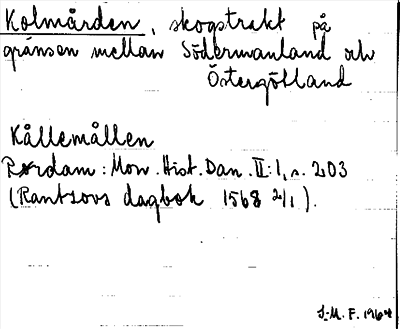 Kolmården, skogstrakt på
gränsen mellan Södermanland och
Östergötland
Kållemållen
Rørdam: Mon. Hist. Dan. II:1, s. 203
(Rantzovs dagbok 1568 2/1).
J-M. F. 1964